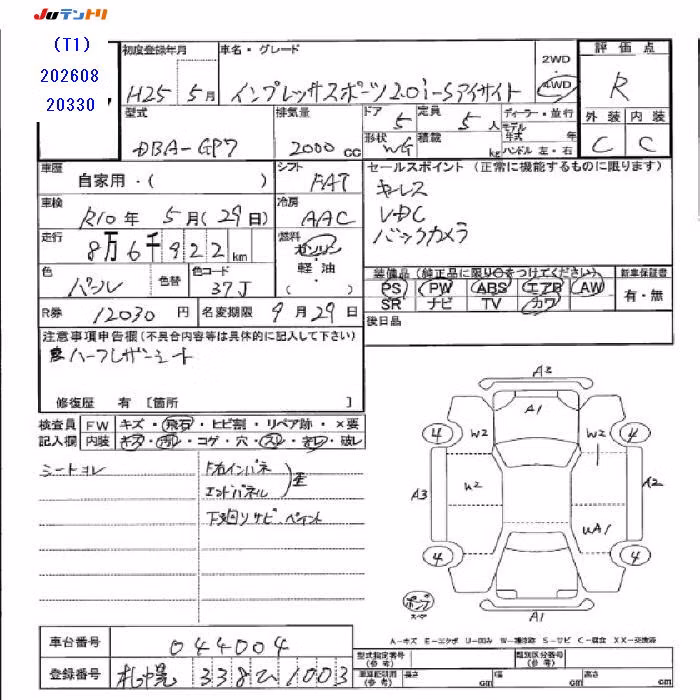 JUテントリ
(T1)
202608
20330
初度登録年月
H25 5月
車名・グレード
インプレッサスポーツ2.0i-Sアイサイト
2WD
4WD
評価点
R
外装 内装
C C
型式
DBA-GP7
排気量
2000cc
ドア 5
定員 5人
形状 WG
積載 kg
ディーラー・並行
モデル年式 年
ハンドル 左・右
車歴
自家用・( )
シフト
FAT
セールスポイント (正常に機能するものに限ります)
キーレス
VDC
バックカメラ
車検
R10年 5月(29日)
冷房
AAC
走行
8万6千922km
燃料
ガソリン
・
軽油
( )
色
パール
色替
色コード
37J
装備品(純正品に限り○をつけてください)
PS PW ABS エアB AW
SR ナビ TV カワ
新車保証書
有・無
R券 12030円
名変期限 9月29日
後日品
注意事項申告欄(不具合内容等は具体的に記入して下さい)
ハーフレザーシート
修復歴 有 [箇所 ]
検査員記入欄
FW キズ・飛石・ヒビ割・リペア跡・×要
内装 キズ・汚れ・コゲ・穴・スレ・きレ・破レ
シートヨレ
F右インパネ
エンドパネル
歪
下廻りサビ ペイント
A3
A1
4
W2
W2
4
A3
W2
A2
UA1
4
4
ポンプ
A1
A-キズ E-エクボ U-凹み W-補修跡 S-サビ C-腐食 XX-交換済
車台番号
044004
登録番号
札幌 338ひ1003
型式指定番号
(参考)
類別区分番号
(参考)
車両総削項
(参考)
長さ cm 幅 cm 高さ cm